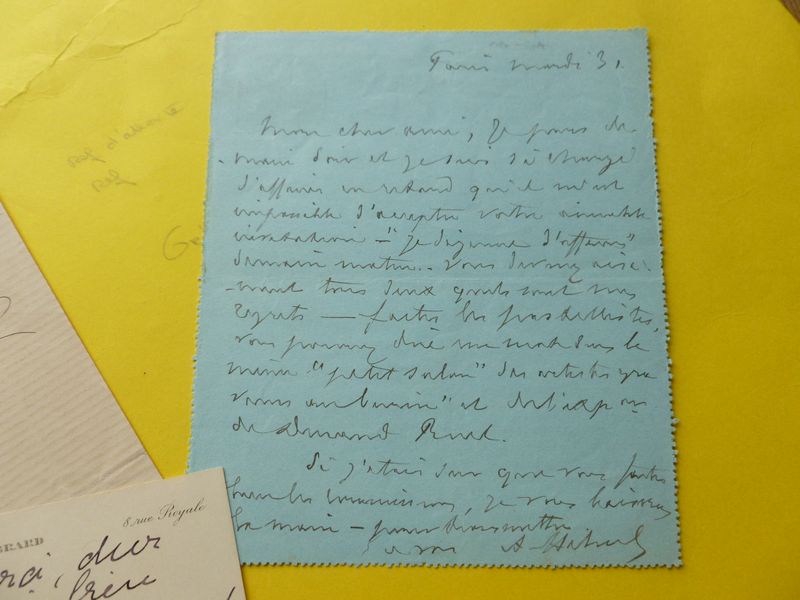 Paris mardi 3.
Mon cher ami, Je pars de-
main soir et je suis si chargé
d'affaires en retard qu'il m'est
impossible d'accepter votre aimable
invitation - "Je déjeune d'affaires"
demain matin - Vous devinez aisé-
ment tous deux quels sont mes
regrets — faites les pastellistes,
vous pourrez dire un mot dans le
même "petit salon" des artistes
et de l'expon
de Durand Ruel.
Si j'étais sur que vous faites
toutes les commissions, je vous baiserais
la main - pour transmettre
à vous A.
8 rue Royale